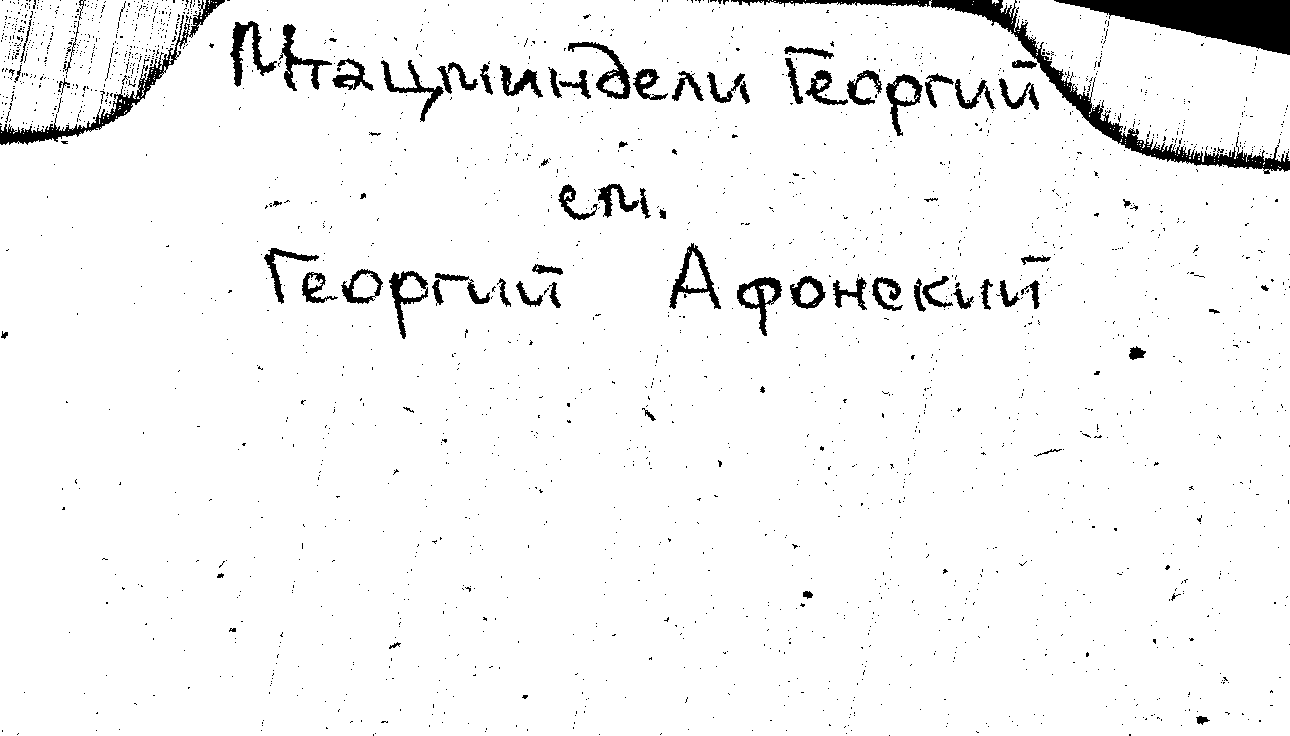 Мтацминдели Георгий
см.
Георгий Афонский